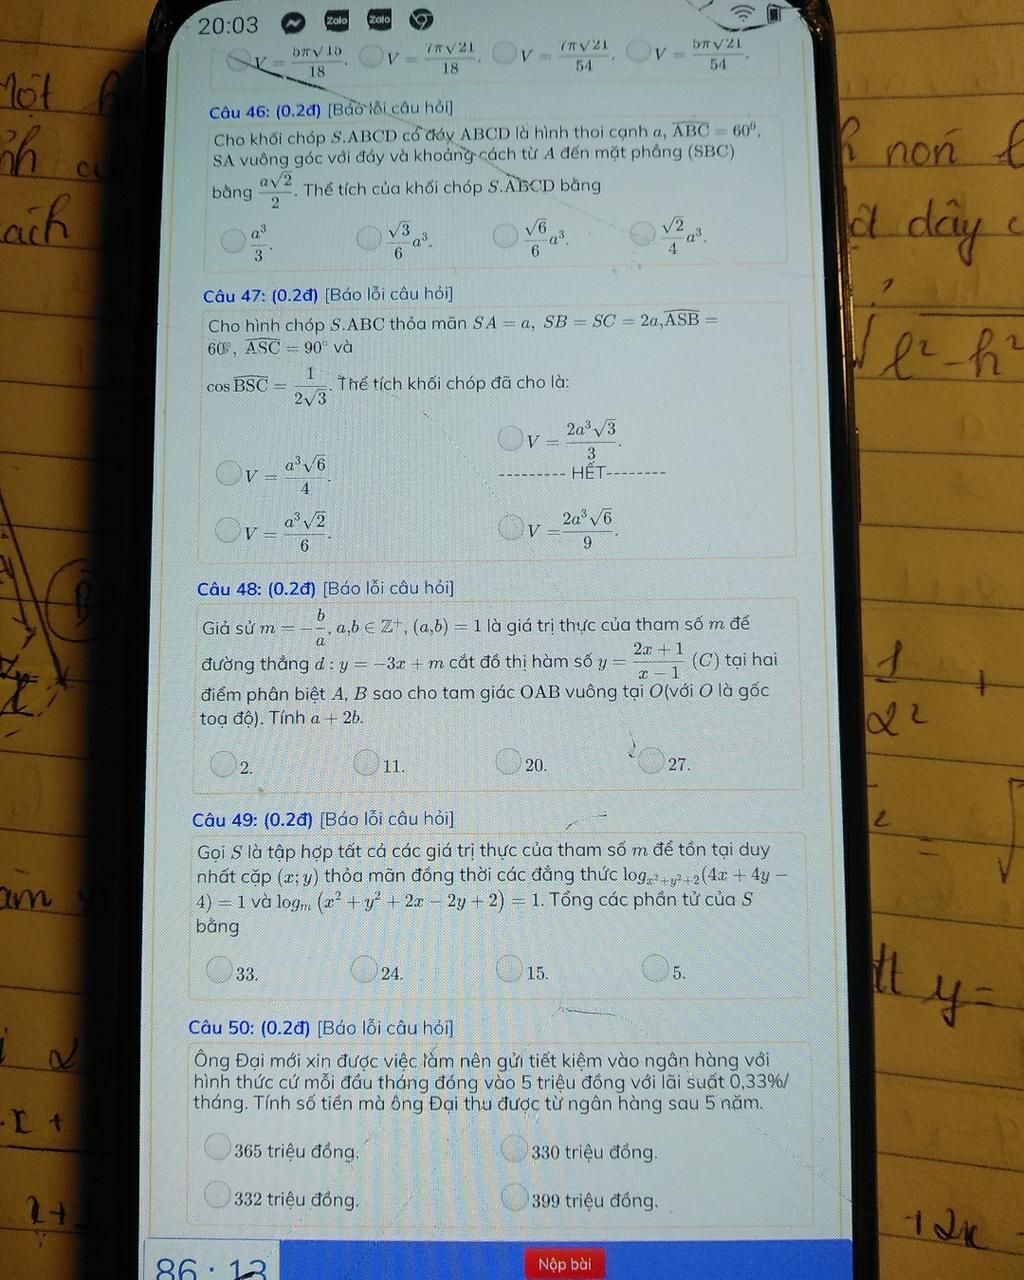 20:03 Zalo Zalo
V = 5π√15/18. V = 7π√21/18. V = 7π√21/54. V = 5π√21/54.
Câu 46: (0.2đ) [Báo lỗi câu hỏi]
Cho khối chóp S.ABCD có đáy ABCD là hình thoi cạnh a, ABC = 60⁰,
SA vuông góc với đáy và khoảng cách từ A đến mặt phẳng (SBC)
bằng a√2/2. Thể tích của khối chóp S.ABCD bằng
a³/3. √3/6 a³. √6/6 a³. √2/4 a³.
Câu 47: (0.2đ) [Báo lỗi câu hỏi]
Cho hình chóp S.ABC thỏa mãn SA = a, SB = SC = 2a, ASB =
60°, ASC = 90° và
cos BSC = 1/2√3. Thể tích khối chóp đã cho là:
V = 2a³√3/3.
--------- HẾT--------
V = a³√6/4.
V = a³√2/6. V = 2a³√6/9.
Câu 48: (0.2đ) [Báo lỗi câu hỏi]
Giả sử m = −b/a, a,b ∈ ℤ⁺, (a,b) = 1 là giá trị thực của tham số m để
đường thẳng d : y = −3x + m cắt đồ thị hàm số y = 2x + 1/x − 1 (C) tại hai
điểm phân biệt A, B sao cho tam giác OAB vuông tại O(với O là gốc
toạ độ). Tính a + 2b.
2. 11. 20. 27.
Câu 49: (0.2đ) [Báo lỗi câu hỏi]
Gọi S là tập hợp tất cả các giá trị thực của tham số m để tồn tại duy
nhất cặp (x; y) thỏa mãn đồng thời các đẳng thức log_{x²+y²+2}(4x + 4y −
4) = 1 và log_m (x² + y² + 2x − 2y + 2) = 1. Tổng các phần tử của S
bằng
33. 24. 15. 5.
Câu 50: (0.2đ) [Báo lỗi câu hỏi]
Ông Đại mới xin được việc làm nên gửi tiết kiệm vào ngân hàng với
hình thức cứ mỗi đầu tháng đóng vào 5 triệu đồng với lãi suất 0,33%/
tháng. Tính số tiền mà ông Đại thu được từ ngân hàng sau 5 năm.
365 triệu đồng. 330 triệu đồng.
332 triệu đồng. 399 triệu đồng.
86 : 13 Nộp bài
Một
ách
nón
dây
√ℓ² − h²
1/2² +
y =
+ 2x